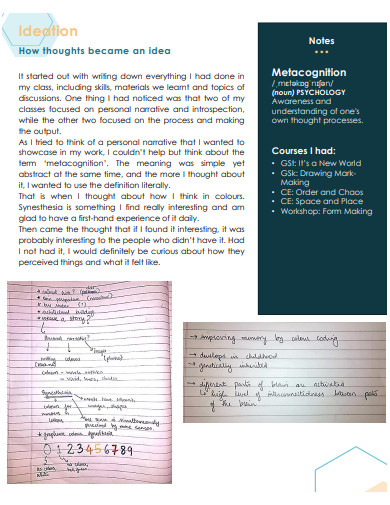 Ideation
How thoughts became an idea
It started out with writing down everything I had done in
my class, including skills, materials we learnt and topics of
discussions. One thing I had noticed was that two of my
classes focused on personal narrative and introspection,
while the other two focused on the process and making
the output.
As I tried to think of a personal narrative that I wanted to
showcase in my work, I couldn't help but think about the
term 'metacognition'. The meaning was simple yet
abstract at the same time, and the more I thought about
it, I wanted to use the definition literally.
That is when I thought about how I think in colours.
Synesthesia is something I find really interesting and am
glad to have a first-hand experience of it daily.
Then came the thought that if I found it interesting, it was
probably interesting to the people who didn't have it. Had
I not had it, I would definitely be curious about how they
perceived things and what it felt like.
Notes
Metacognition
(noun) PSYCHOLOGY
Awareness and
understanding of one's
own thought processes.
Courses I had:
• GSt: It's a New World
• GSk: Drawing Mark-
Making
• CE: Order and Chaos
• CE: Space and Place
• Workshop: Form Making
a story?
Personal narrative?
Synesthesia
0 1 2 3 4 5 6 7 8 9
→ improving memory by colour coding
→ develops in childhood
→ genetically inherited
→ different parts of brain are activated
high level of interconnectedness between parts
of the brain